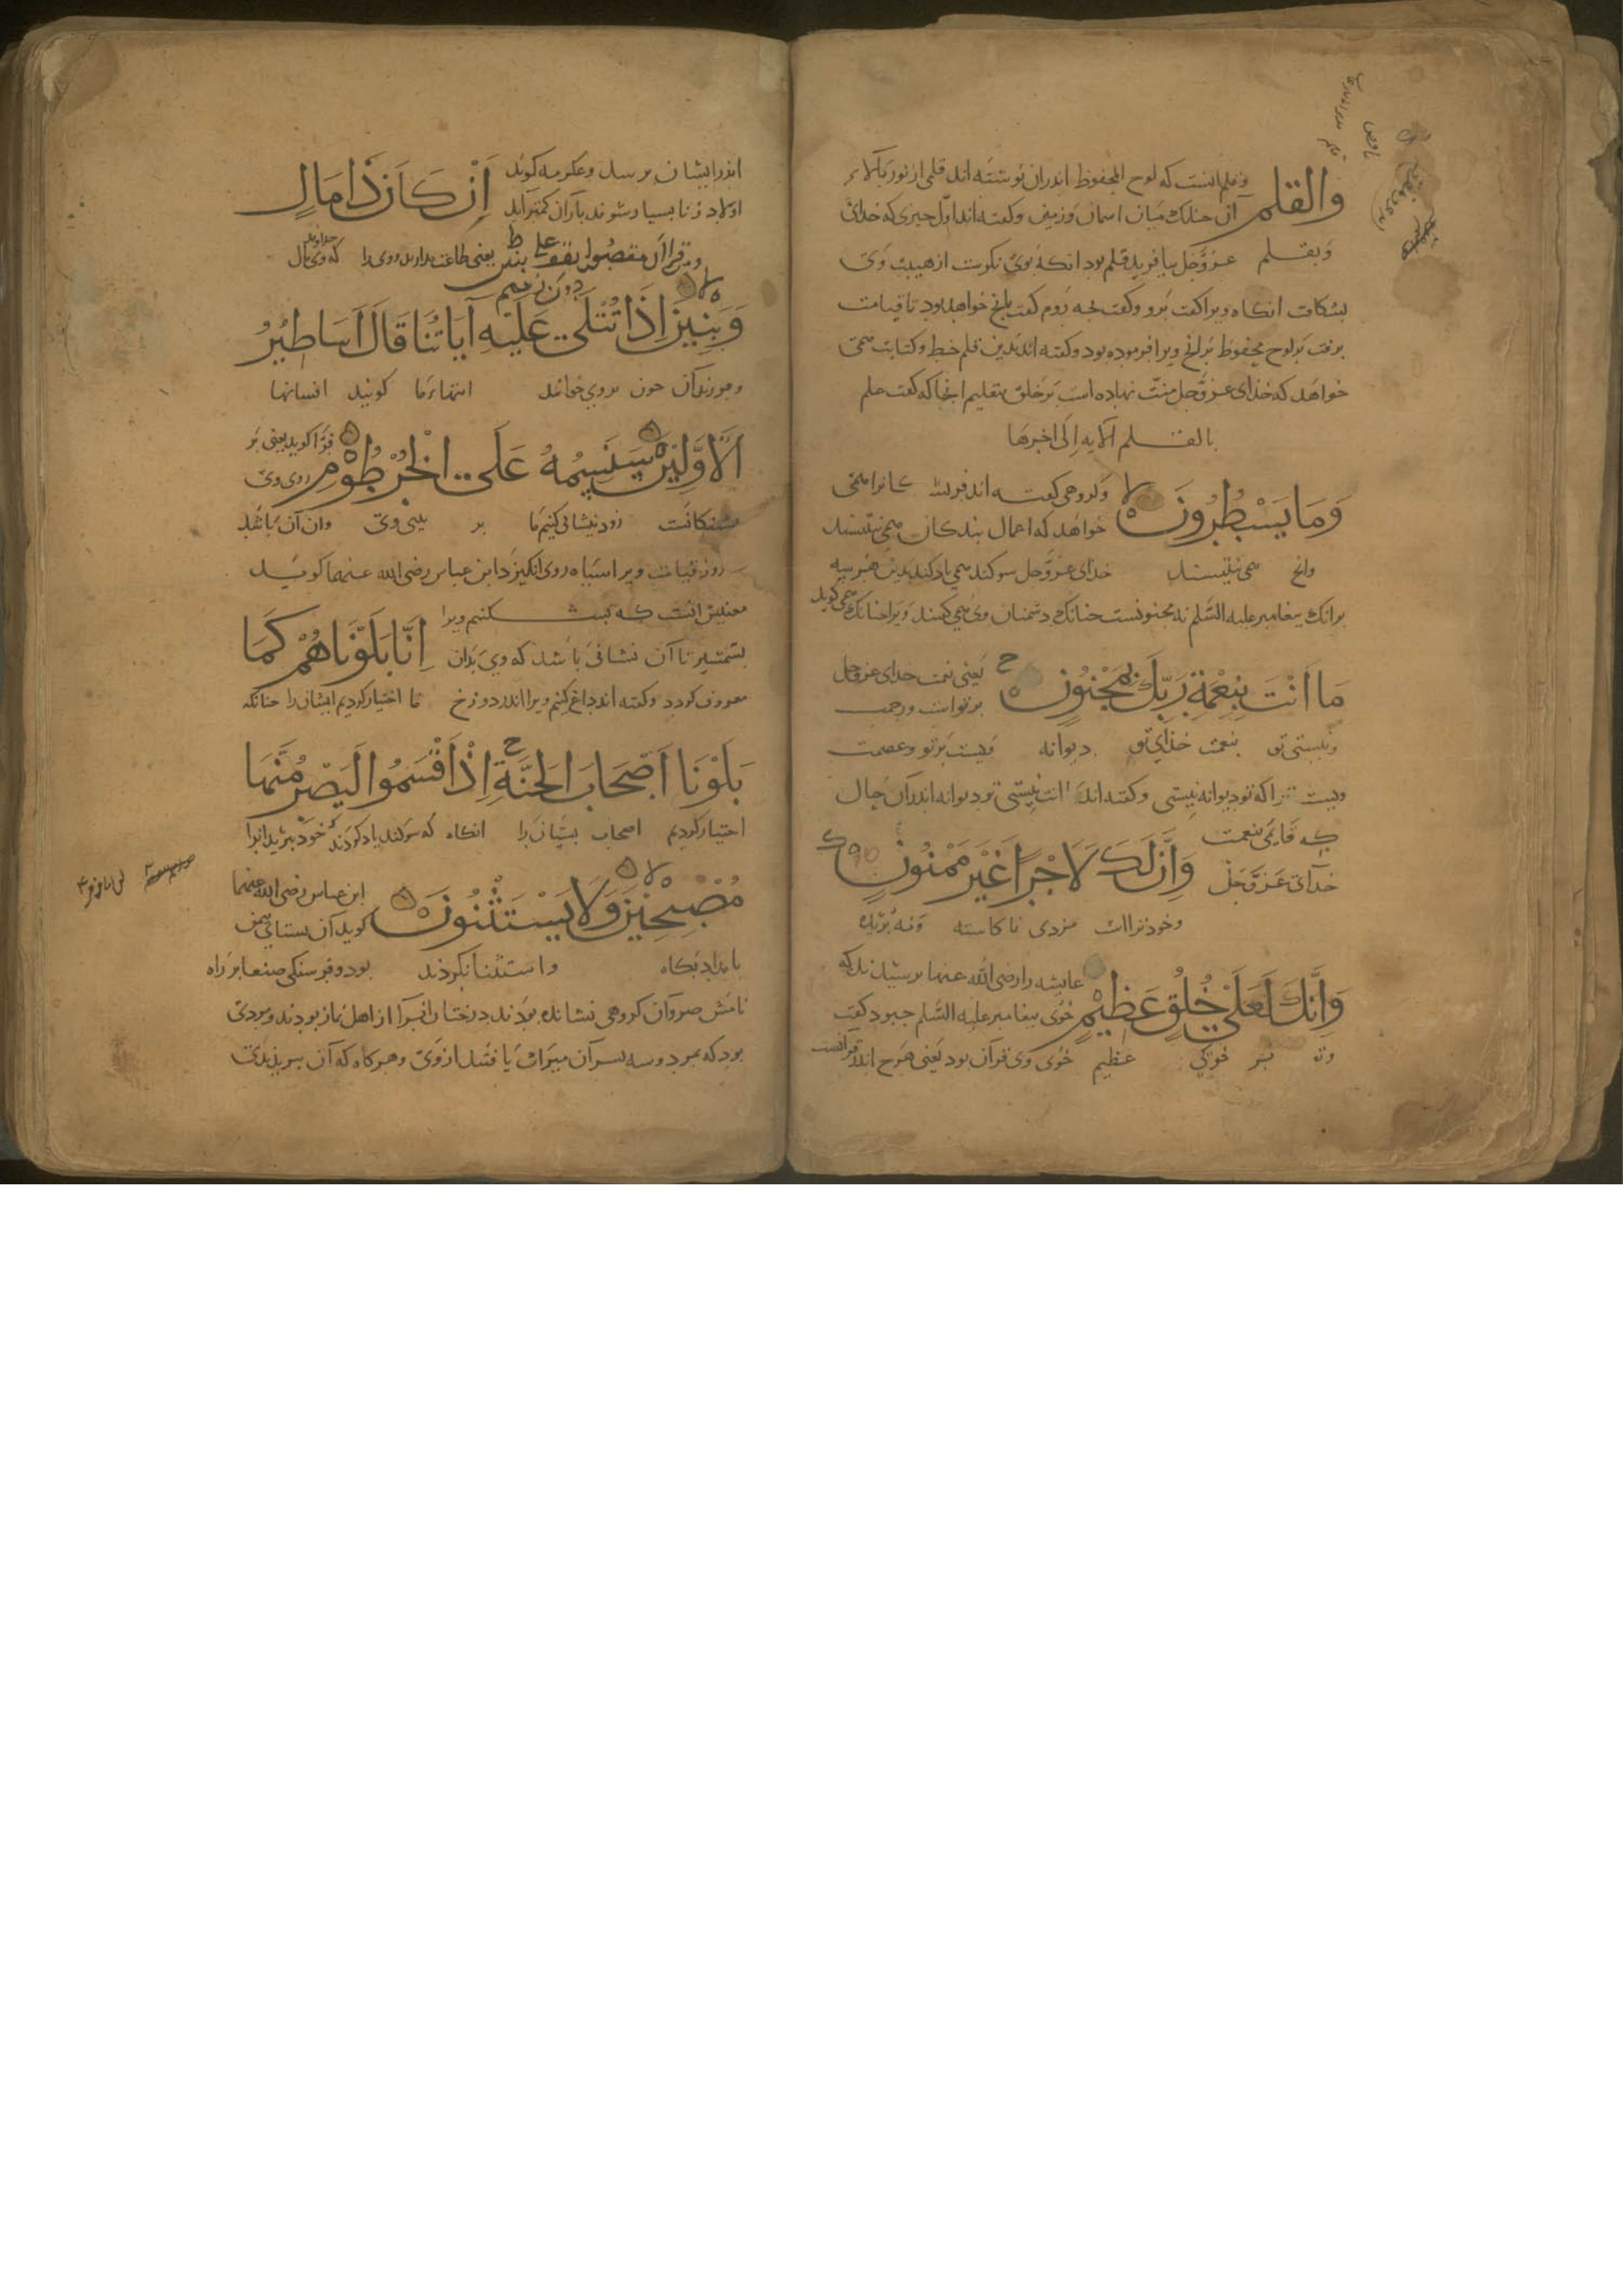 والقلم
و قلم انست که لوح المحفوظ اندران نوشته اند قلمی از نور بالاء
آن چندانک میان اسمان و زمین و گفته اند اول چیزی که خدای
و بقلم عز و جل بیافرید قلم بود انکه بوی نکرست از هیبت وی
بشکافت انکاه ویرا گفت برو گفت بچه روم گفت بانچ خواهد بود تا قیامت
برفت بر لوح محفوظ برانچ ویرا فرموده بود و گفته اند بدین قلم خط و کتابت همی
خواهد که خدای عز و جل منت نهاده است بر خلق بتعلیم انجا که گفت علم
بالقلم الایه الی اخرها
وَمَا يَسْطُرُونَ
و گروهی گفته اند فریشتگانرا همی
خواهد که اعمال بندکان همی نبیسند
وانچ همی نبیسند خدای عز و جل سوکند همی یاد کند بدین هر سه
برانک بیغامبر علیه السلم نه مجنونست چنانک دشمنان وی همی گویند
مَا أَنْتَ بِنِعْمَةِ رَبِّكَ بِمَجْنُونٍ
یعنی نعمت خدای عز و جل
بر تو است و رحمت
و نیستی تو بنعمت خدای تو دیوانه ویست بر تو و عصمت
ویست ترا که تو دیوانه نیستی و گفته اند انت نیستی تو دیوانه اندران حال
که قایمی بنعمت
خدای عز و جل
وَإِنَّ لَكَ لَأَجْرًا غَيْرَ مَمْنُونٍ
و خود تراست مزدی ناکاسته و نه بریده
وَإِنَّكَ لَعَلَىٰ خُلُقٍ عَظِيمٍ
عایشه را رضی الله عنها برسیدند که
خوی بیغامبر علیه السلم چبود گفت
وتو بر خویی عظیم خوی وی قرآن بود یعنی هرچ اندر قرآنست
اندر ایشان برسد و عکرمه گوید
اولاد زنا بسیار شوند باران کمتر آید
أَنْ كَانَ ذَا مَالٍ
یعنی طاعت مدار
وَبَنِينَ إِذَا تُتْلَىٰ عَلَيْهِ آيَاتُنَا قَالَ أَسَاطِيرُ
و فرزندان چون بر وی خوانند ایتهاء ما گویند افسانها
الْأَوَّلِينَ سَنَسِمُهُ عَلَى الْخُرْطُومِ
فرّا گوید یعنی بر
روی وی
زود نشانی کنیم ما بر بینی وی وان آن باشد
روز قیامت ویرا سیاه روی انگیزد ابن عباس رضی الله عنهما گوید
معنیش انست که
بشمشیر تا آن نشانی باشد که وی بدان
إِنَّا بَلَوْنَاهُمْ كَمَا
معروف گردد و گفته اند داغ کنیم ویرا اندر دوزخ ما اختیار کردیم ایشان را چنانکه
بَلَوْنَا أَصْحَابَ الْجَنَّةِ إِذْ أَقْسَمُوا لَيَصْرِمُنَّهَا
اختیار کردیم اصحاب بستان را انکاه که سوکند یاد کردند که خود ببرند انرا
مُصْبِحِينَ وَلَا يَسْتَثْنُونَ
ابن عباس رضی الله عنهما
گوید آن بستانی بیمن
بامداد بگاه و استثنا نکردند بود و فرسنگی صنعا بر راه
نامش صروان گروهی نشانده بودند درختان انرا از اهل نماز بودند و مردی
بود که بمرد و سه بسر آن میراث یافتند از وی و هرکاه که آن ببریدندی